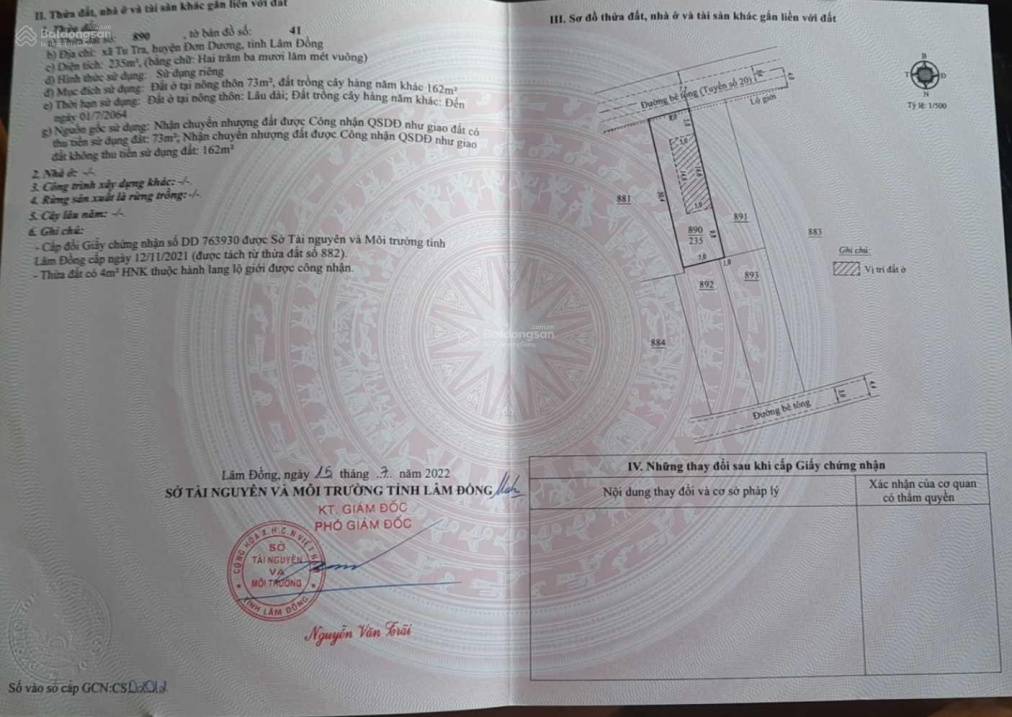 II. Thửa đất, nhà ở và tài sản khác gắn liền với đất
1. Thửa đất:
a) Thửa đất số: 890 , tờ bản đồ số: 41
b) Địa chỉ: xã Tu Tra, huyện Đơn Dương, tỉnh Lâm Đồng
c) Diện tích: 235m², (bằng chữ: Hai trăm ba mươi lăm mét vuông)
d) Hình thức sử dụng: Sử dụng riêng
đ) Mục đích sử dụng: Đất ở tại nông thôn 73m², đất trồng cây hàng năm khác 162m²
e) Thời hạn sử dụng: Đất ở tại nông thôn: Lâu dài; Đất trồng cây hàng năm khác: Đến
ngày 01/7/2064
g) Nguồn gốc sử dụng: Nhận chuyển nhượng đất được Công nhận QSDĐ như giao đất có
thu tiền sử dụng đất: 73m²; Nhận chuyển nhượng đất được Công nhận QSDĐ như giao
đất không thu tiền sử dụng đất: 162m²
2. Nhà ở: -/-
3. Công trình xây dựng khác: -/-
4. Rừng sản xuất là rừng trồng: -/-
5. Cây lâu năm: -/-
6. Ghi chú:
- Cấp đổi Giấy chứng nhận số DD 763930 được Sở Tài nguyên và Môi trường tỉnh
Lâm Đồng cấp ngày 12/11/2021 (được tách từ thửa đất số 882).
- Thửa đất có 4m² HNK thuộc hành lang lộ giới được công nhận.
Lâm Đồng, ngày 15 tháng 7 năm 2022
SỞ TÀI NGUYÊN VÀ MÔI TRƯỜNG TỈNH LÂM ĐỒNG
KT. GIÁM ĐỐC
PHÓ GIÁM ĐỐC
CỘNG HÒA X.H.C.N VIỆT NAM
SỞ
TÀI NGUYÊN
VÀ
MÔI TRƯỜNG
TỈNH LÂM ĐỒNG
Nguyễn Văn Trãi
Số vào sổ cấp GCN:CS
III. Sơ đồ thửa đất, nhà ở và tài sản khác gắn liền với đất
B
T
Đ
N
Tỷ lệ: 1/500
Đường bê tông (Tuyến số 20)
Lộ giới
881
891
883
890
235
892
893
884
Ghi chú:
Vị trí đất ở
Đường bê tông
IV. Những thay đổi sau khi cấp Giấy chứng nhận
Nội dung thay đổi và cơ sở pháp lý
Xác nhận của cơ quan
có thẩm quyền
Batdongsan
.com.vn
Batdongsan
.com.vn